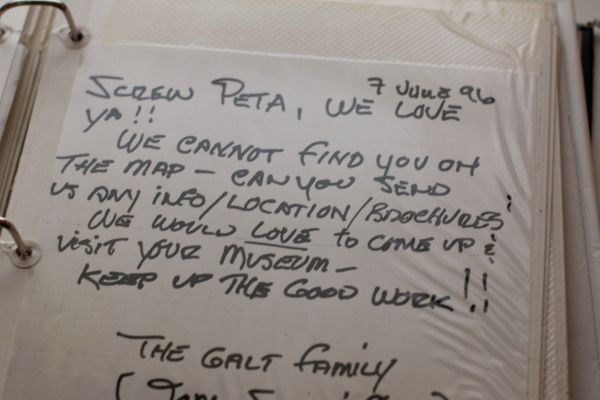 7 JUNE 96
SCREW PETA, WE LOVE
YA!!
WE CANNOT FIND YOU ON
THE MAP - CAN YOU SEND
US ANY INFO/LOCATION/BROCHURES;
WE WOULD LOVE to COME UP &
VISIT YOUR MUSEUM -
KEEP UP THE GOOD WORK!!
THE GALT FAMILY